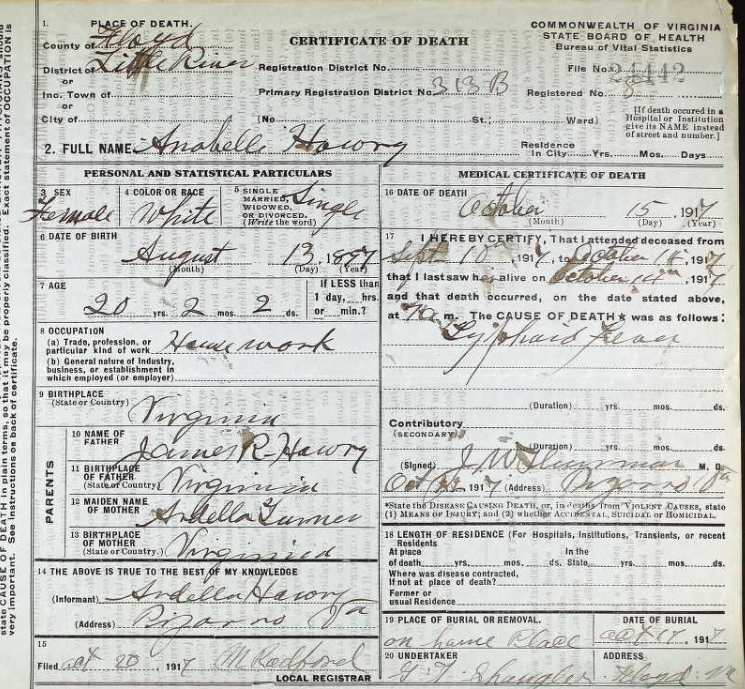 1. PLACE OF DEATH.
County of Floyd
District of Little River
or
Inc. Town of
or
City of
CERTIFICATE OF DEATH
Registration District No.
Primary Registration District No. 313B
(No. St.; Ward)
COMMONWEALTH OF VIRGINIA
STATE BOARD OF HEALTH
Bureau of Vital Statistics
File No. 24442
Registered No. 8
[If death occured in a
Hospital or Institution
give its NAME instead
of street and number.]
2. FULL NAME Anabelle Howry
Residence
in City Yrs. Mos. Days
PERSONAL AND STATISTICAL PARTICULARS
3 SEX
Female
4 COLOR OR RACE
White
5 SINGLE
MARRIED,
WIDOWED,
OR DIVORCED.
(Write the word)
Single
6 DATE OF BIRTH
August 13, 1897
(Month) (Day) (Year)
7 AGE
20 yrs. 2 mos. 2 ds.
If LESS than
1 day, hrs.
or min.?
8 OCCUPATION
(a) Trade, profession, or
particular kind of work House work
(b) General nature of Industry,
business, or establishment in
which employed (or employer)
9 BIRTHPLACE
(State or Country)
Virginia
PARENTS
10 NAME OF
FATHER
James R Howry
11 BIRTHPLACE
OF FATHER
(State or Country)
Virginia
12 MAIDEN NAME
OF MOTHER
Ardella Turner
13 BIRTHPLACE
OF MOTHER
(State or Country)
Virginia
14 THE ABOVE IS TRUE TO THE BEST OF MY KNOWLEDGE
(Informant) Ardella Howry
(Address) Pizarro Va
15
Filed Oct 20, 1917 M Radford
LOCAL REGISTRAR
MEDICAL CERTIFICATE OF DEATH
16 DATE OF DEATH
October 15, 1917
(Month) (Day) (Year)
17 I HEREBY CERTIFY, That I attended deceased from
Sept 10, 1917, to October 14, 1917
that I last saw her alive on October 14th, 1917
and that death occurred, on the date stated above,
at 7 a m. The CAUSE OF DEATH★ was as follows:
Typhoid Fever
(Duration) yrs. mos. ds.
Contributory
(SECONDARY)
(Duration) yrs. mos. ds.
(Signed) J. W. M. D.
Oct 1917 (Address) Pizarro Va
*State the DISEASE CAUSING DEATH, or, in deaths from VIOLENT CAUSES, state
(1) MEANS OF INJURY; and (2) whether ACCIDENTAL, SUICIDAL or HOMICIDAL.
18 LENGTH OF RESIDENCE (For Hospitals, Institutions, Transients, or recent
Residents
At place In the
of death yrs. mos. ds. State yrs. mos. ds.
Where was disease contracted,
if not at place of death?
Former or
usual Residence
19 PLACE OF BURIAL OR REMOVAL.
on home Place
DATE OF BURIAL
Oct 17, 1917
20 UNDERTAKER
G. F.
ADDRESS
Floyd Va
state CAUSE OF DEATH in plain terms, so that it may be properly classified. Exact statement of OCCUPATION is
very important. See instructions on back of certificate.